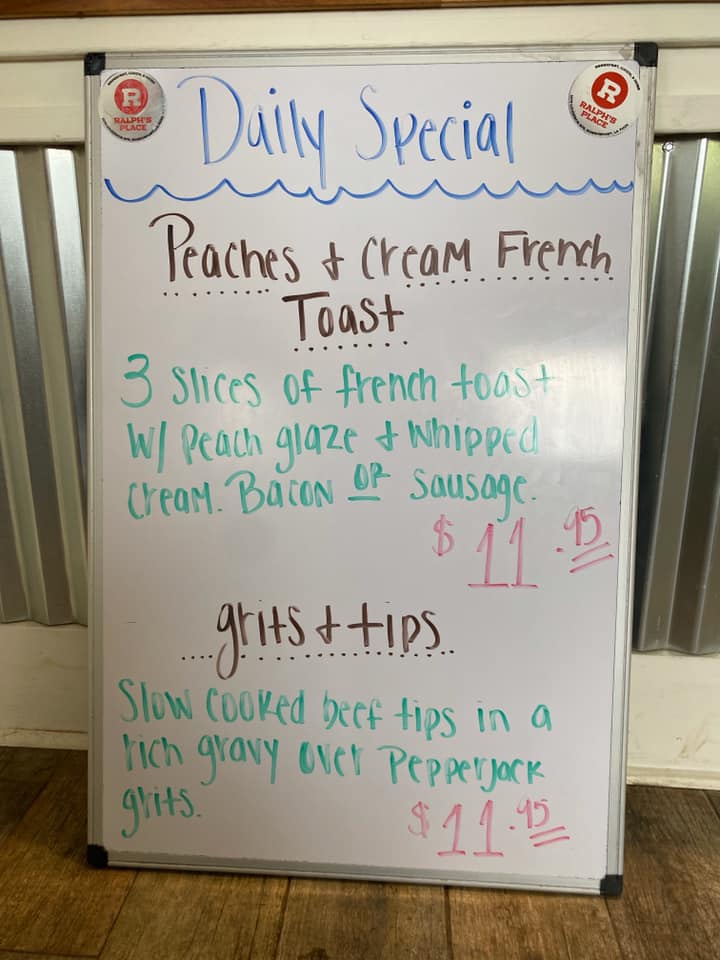 R
RALPH'S
PLACE
R
RALPH'S
PLACE
Daily Special
Peaches & Cream French
Toast
3 Slices of french toast
W/ Peach glaze & Whipped
Cream. Bacon OR Sausage.
$11.95
grits & tips
Slow Cooked beef tips in a
rich gravy over Pepperjack
grits.
$11.95